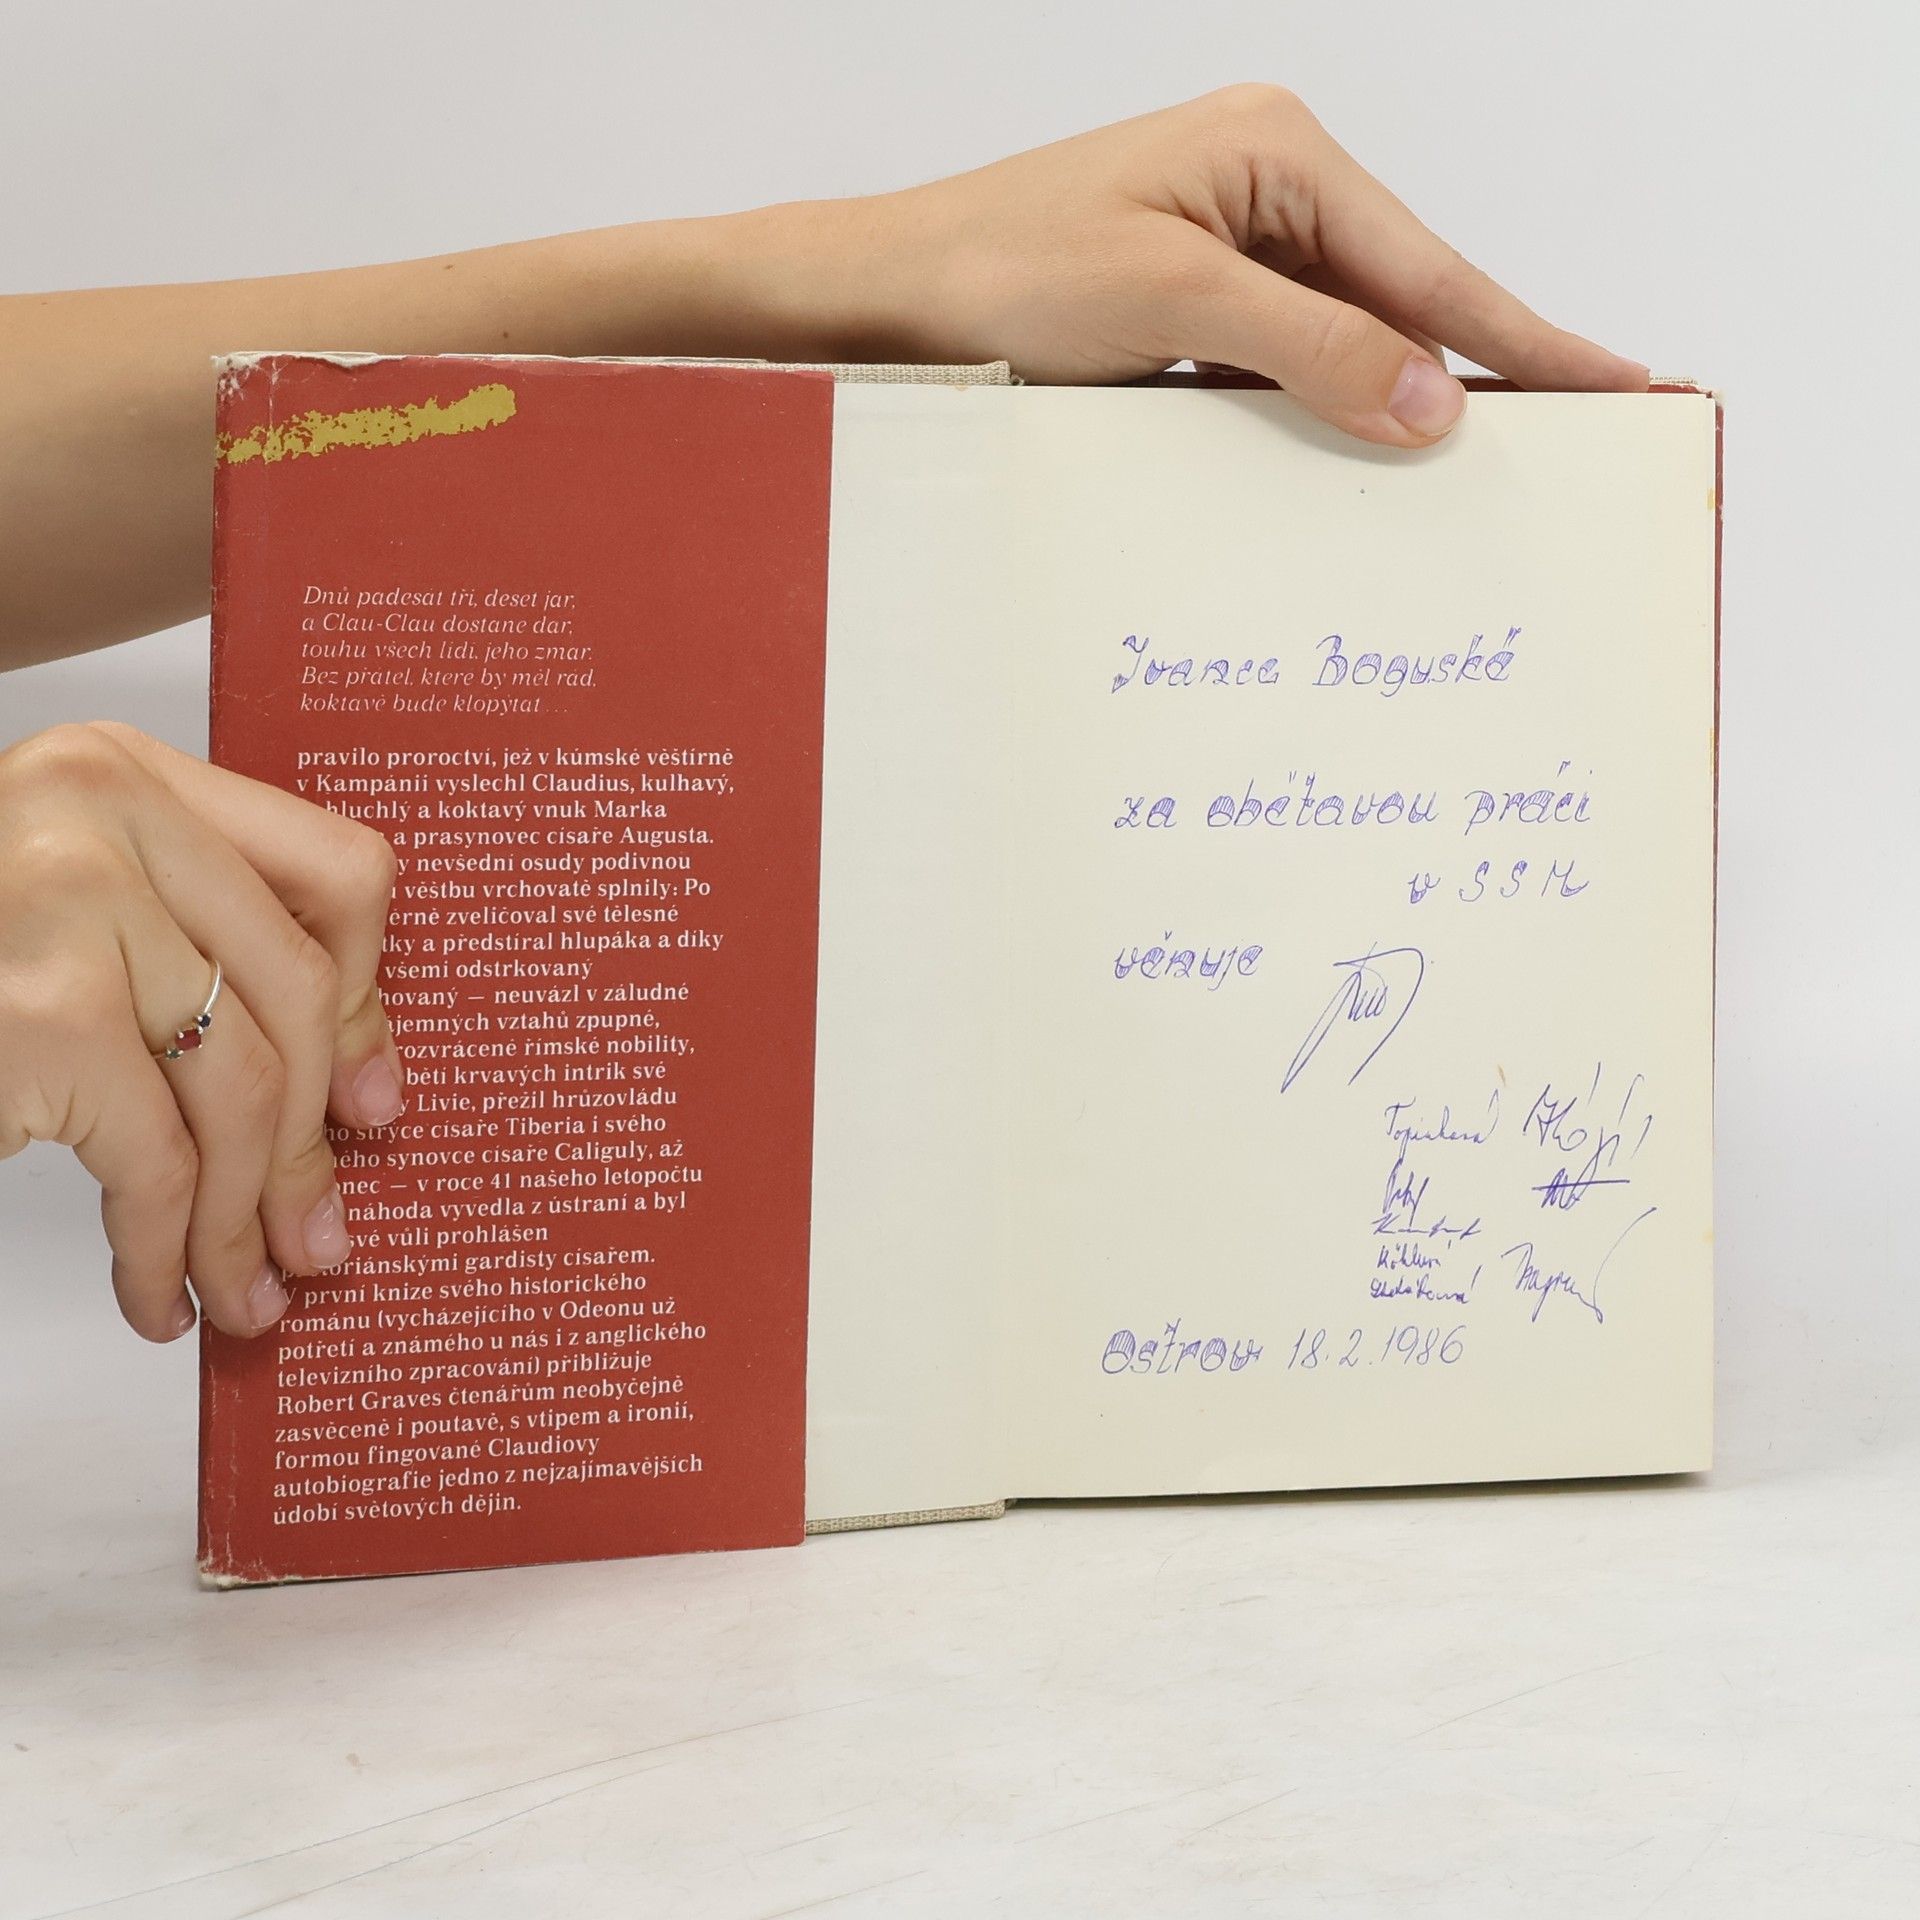 Dnů padesát tři, deset jar,
a Clau-Clau dostane dar,
touhu všech lidí, jeho zmar.
Bez přátel, které by měl rád,
koktavě bude klopýtat ...
pravilo proroctví, jež v kúmské věštírně
v Kampánii vyslechl Claudius, kulhavý,
hluchlý a koktavý vnuk Marka
a prasynovec císaře Augusta.
y nevšední osudy podivnou
věštbu vrchovatě splnily: Po
ěrně zveličoval své tělesné
tky a předstíral hlupáka a díky
všemi odstrkovaný
hovaný — neuvázl v záludné
ájemných vztahů zpupné,
rozvrácené římské nobility,
bětí krvavých intrik své
y Livie, přežil hrůzovládu
ho strýce císaře Tiberia i svého
ného synovce císaře Caliguly, až
onec — v roce 41 našeho letopočtu
náhoda vyvedla z ústraní a byl
své vůli prohlášen
pretoriánskými gardisty císařem.
V první knize svého historického
románu (vycházejícího v Odeonu už
potřetí a známého u nás i z anglického
televizního zpracování) přibližuje
Robert Graves čtenářům neobyčejně
zasvěceně i poutavě, s vtipem a ironií,
formou fingované Claudiovy
autobiografie jedno z nejzajímavějších
údobí světových dějin.
Ivance Boguské
za obětavou práci
v SSM
věnuje
Ostrov 18.2.1986